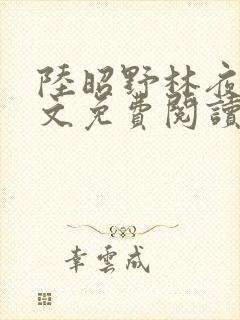 陸昭野林夜
文免費閱讀
幸雲成